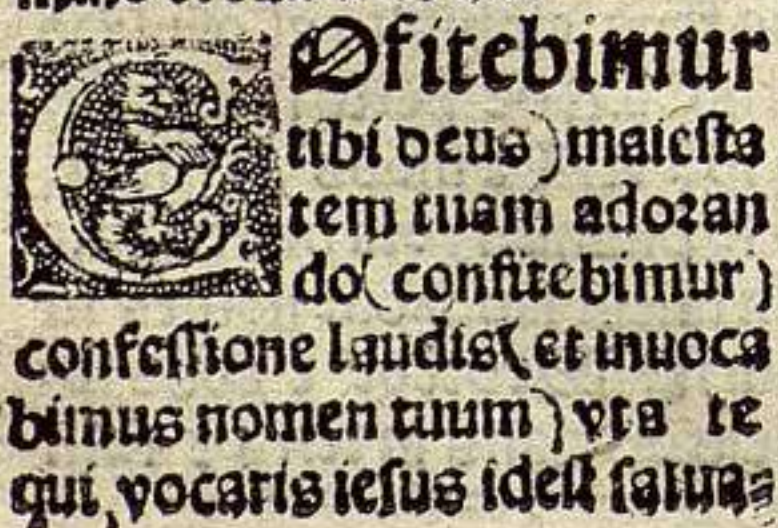 COfitebimur
tibi deus) maiesta
tem tuam adoran
do( confitebimur)
confessione laudis( et inuoca
bimus nomen tuum) vt a te
qui vocaris iesus idest salua-